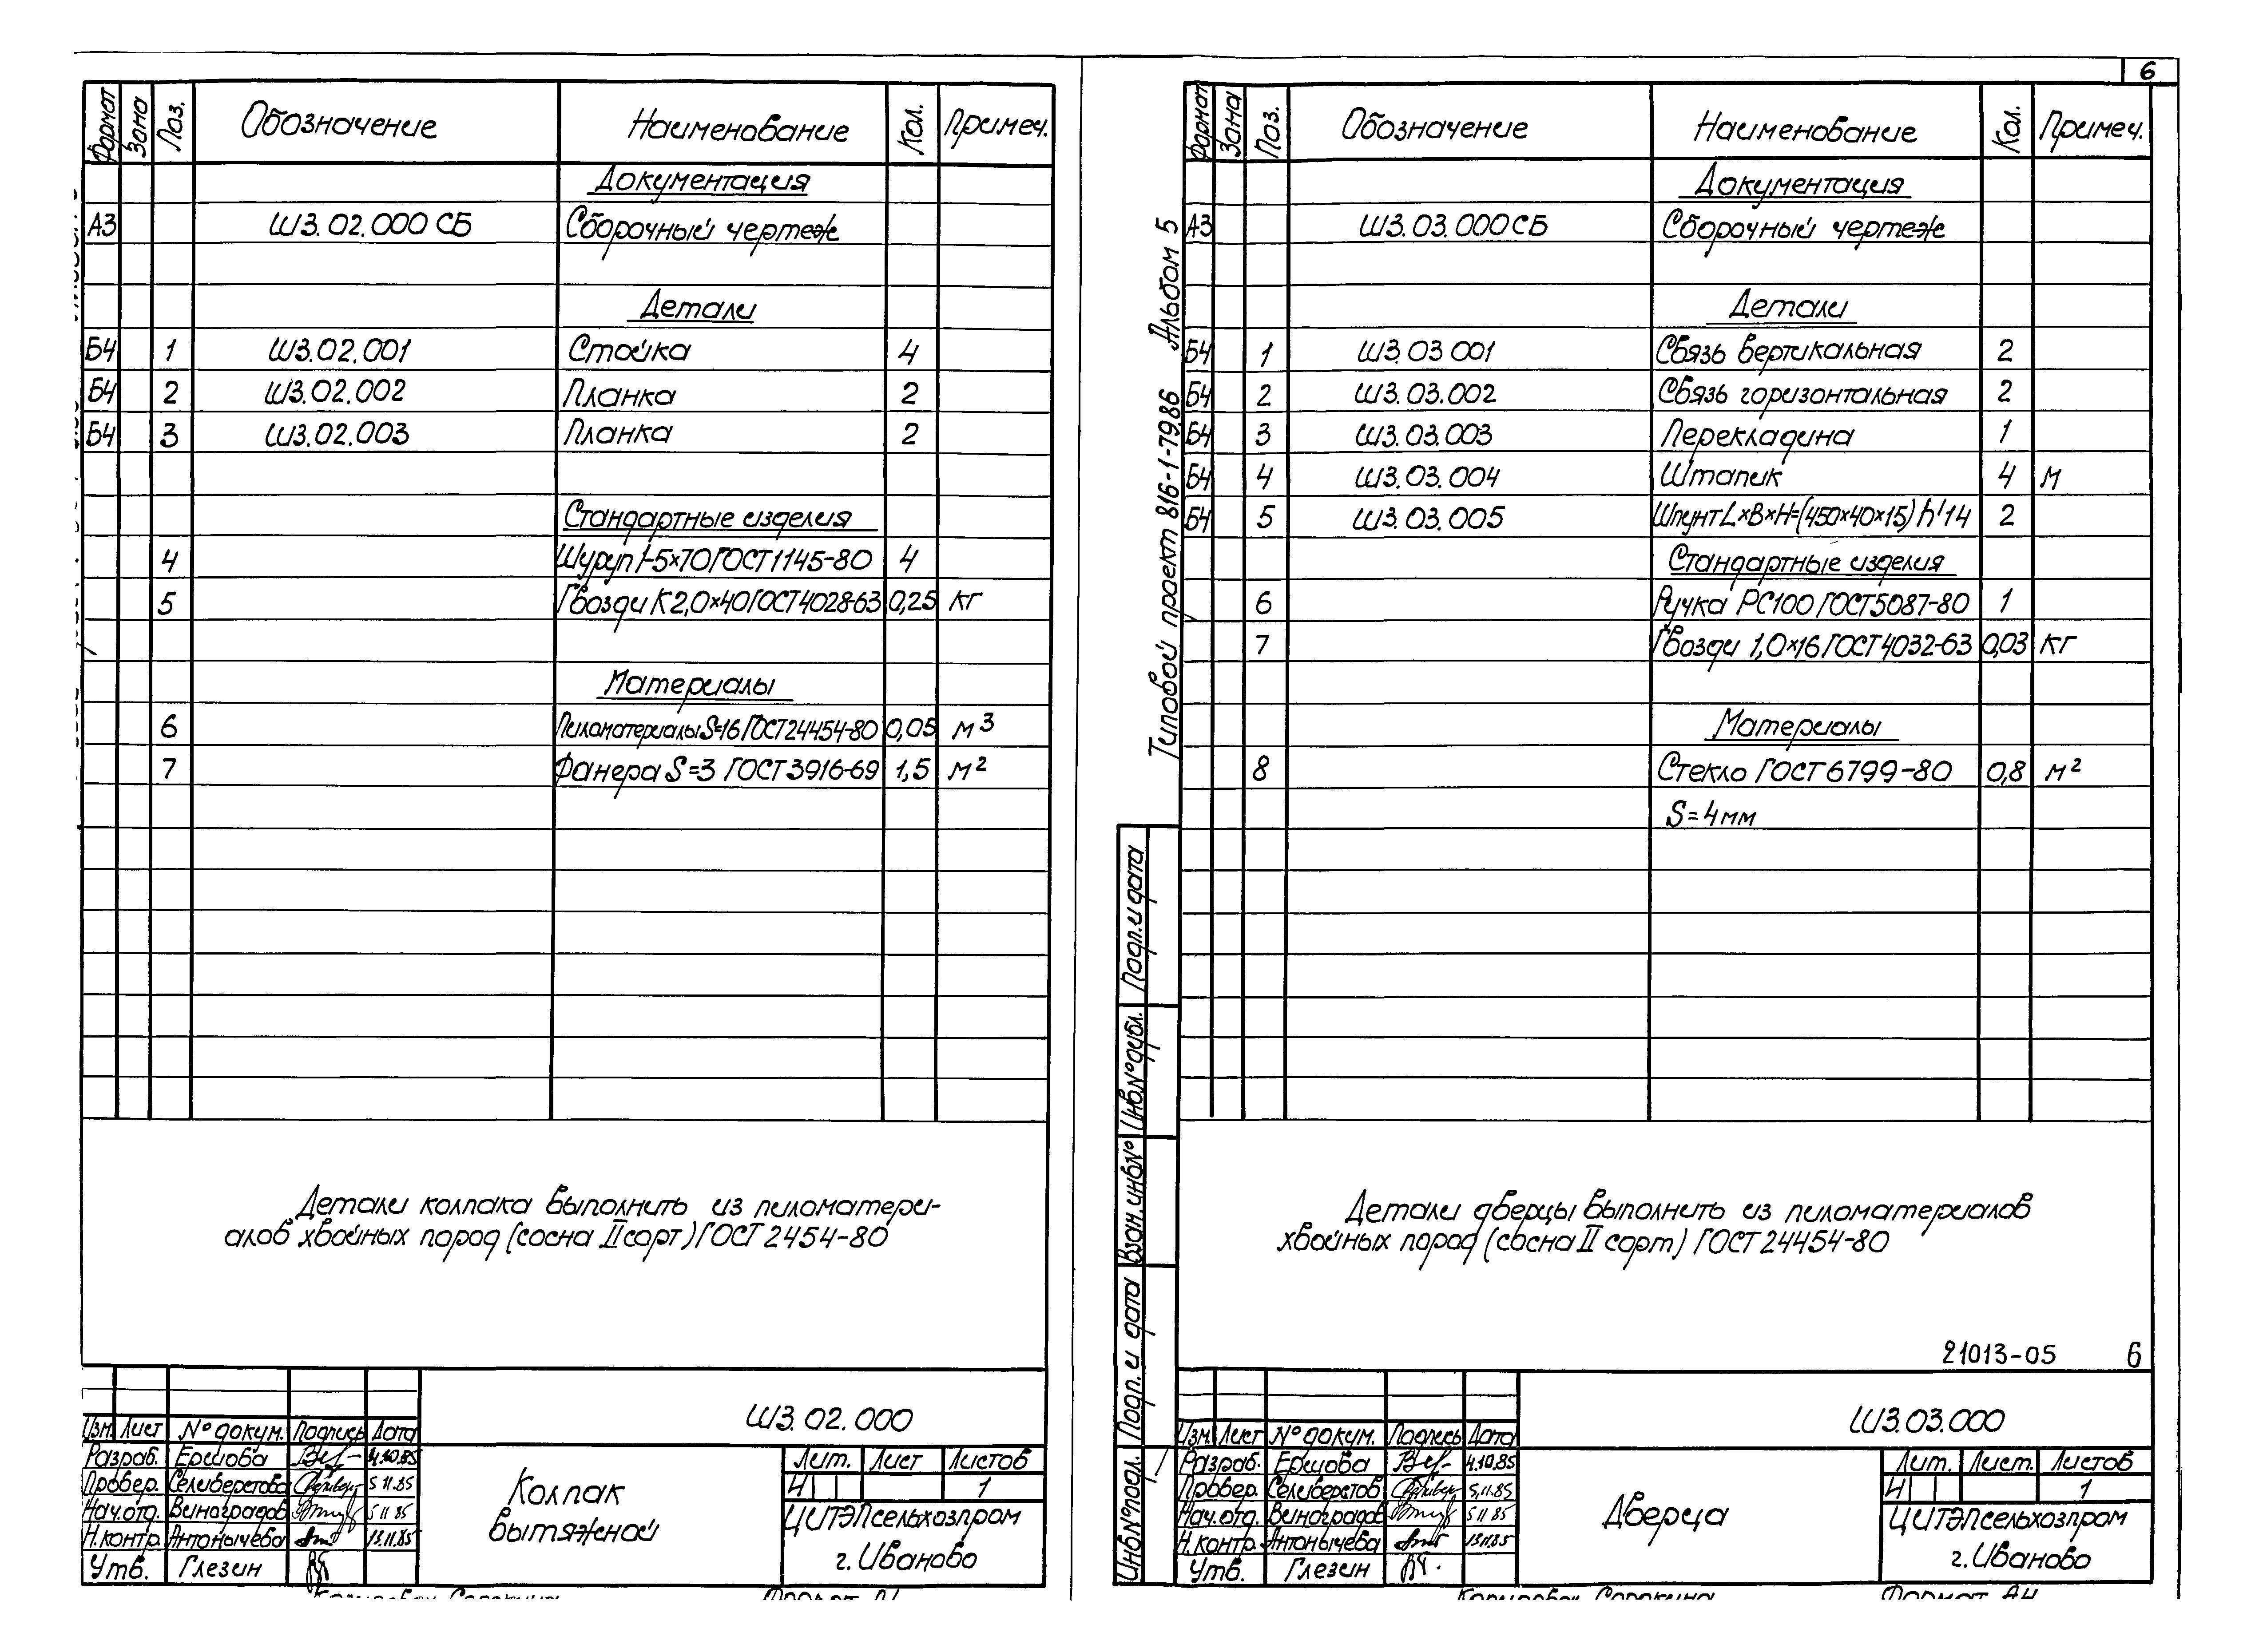 6
Формат Зона Поз. Обозначение Наименование Кол. Примеч.
Документация
А3 ШЗ.02.000 СБ Сборочный чертеж
Детали
Б4 1 ШЗ.02.001 Стойка 4
Б4 2 ШЗ.02.002 Планка 2
Б4 3 ШЗ.02.003 Планка 2
Стандартные изделия
4 Шуруп 1-5×70 ГОСТ 1145-80 4
5 Гвозди К2,0×40 ГОСТ 4028-63 0,25 кг
Материалы
6 Пиломатериалы S=16 ГОСТ 24454-80 0,05 м³
7 Фанера S=3 ГОСТ 3916-69 1,5 м²
Детали колпака выполнить из пиломатери-
алов хвойных пород (сосна II сорт) ГОСТ 2454-80
ШЗ.02.000
Изм. Лист № докум. Подпись Дата
Разраб. Ершова 4.10.85
Провер. Селиверстова 5.11.85
Нач.отд. Виноградов 5 11 85
Н.контр. Антонычева 15.11.85
Утв. Глезин
Колпак
вытяжной
Лит. Лист Листов
И 1
ЦИТЭПсельхозпром
г. Иваново
Формат Зона Поз. Обозначение Наименование Кол. Примеч.
Документация
А3 ШЗ.03.000 СБ Сборочный чертеж
Детали
Б4 1 ШЗ.03 001 Связь вертикальная 2
Б4 2 ШЗ.03.002 Связь горизонтальная 2
Б4 3 ШЗ.03.003 Перекладина 1
Б4 4 ШЗ.03.004 Штапик 4 м
Б4 5 ШЗ.03.005 Шпунт L×B×H=(450×40×15) h'14 2
Стандартные изделия
6 Ручка РС100 ГОСТ 5087-80 1
7 Гвозди 1,0×16 ГОСТ 4032-63 0,03 кг
Материалы
8 Стекло ГОСТ 6799-80 0,8 м²
S=4мм
Типовой проект 816-1-79.86 Альбом 5
Подп. и дата
Инв.№ дубл.
Взан. инв.№
Подп. и дата
Инв.№ подл.
Детали дверцы выполнить из пиломатериалов
хвойных пород (сосна II сорт) ГОСТ 24454-80
21013-05 6
ШЗ.03.000
Изм. Лист № докум. Подпись Дата
Разраб. Ершова 4.10.85
Провер. Селиверстов 5.11.85
Нач.отд. Виноградов 5 11 85
Н.контр. Антонычева 15.11.85
Утв. Глезин
Дверца
Лит. Лист. Листов
И 1
ЦИТЭПсельхозпром
г. Иваново